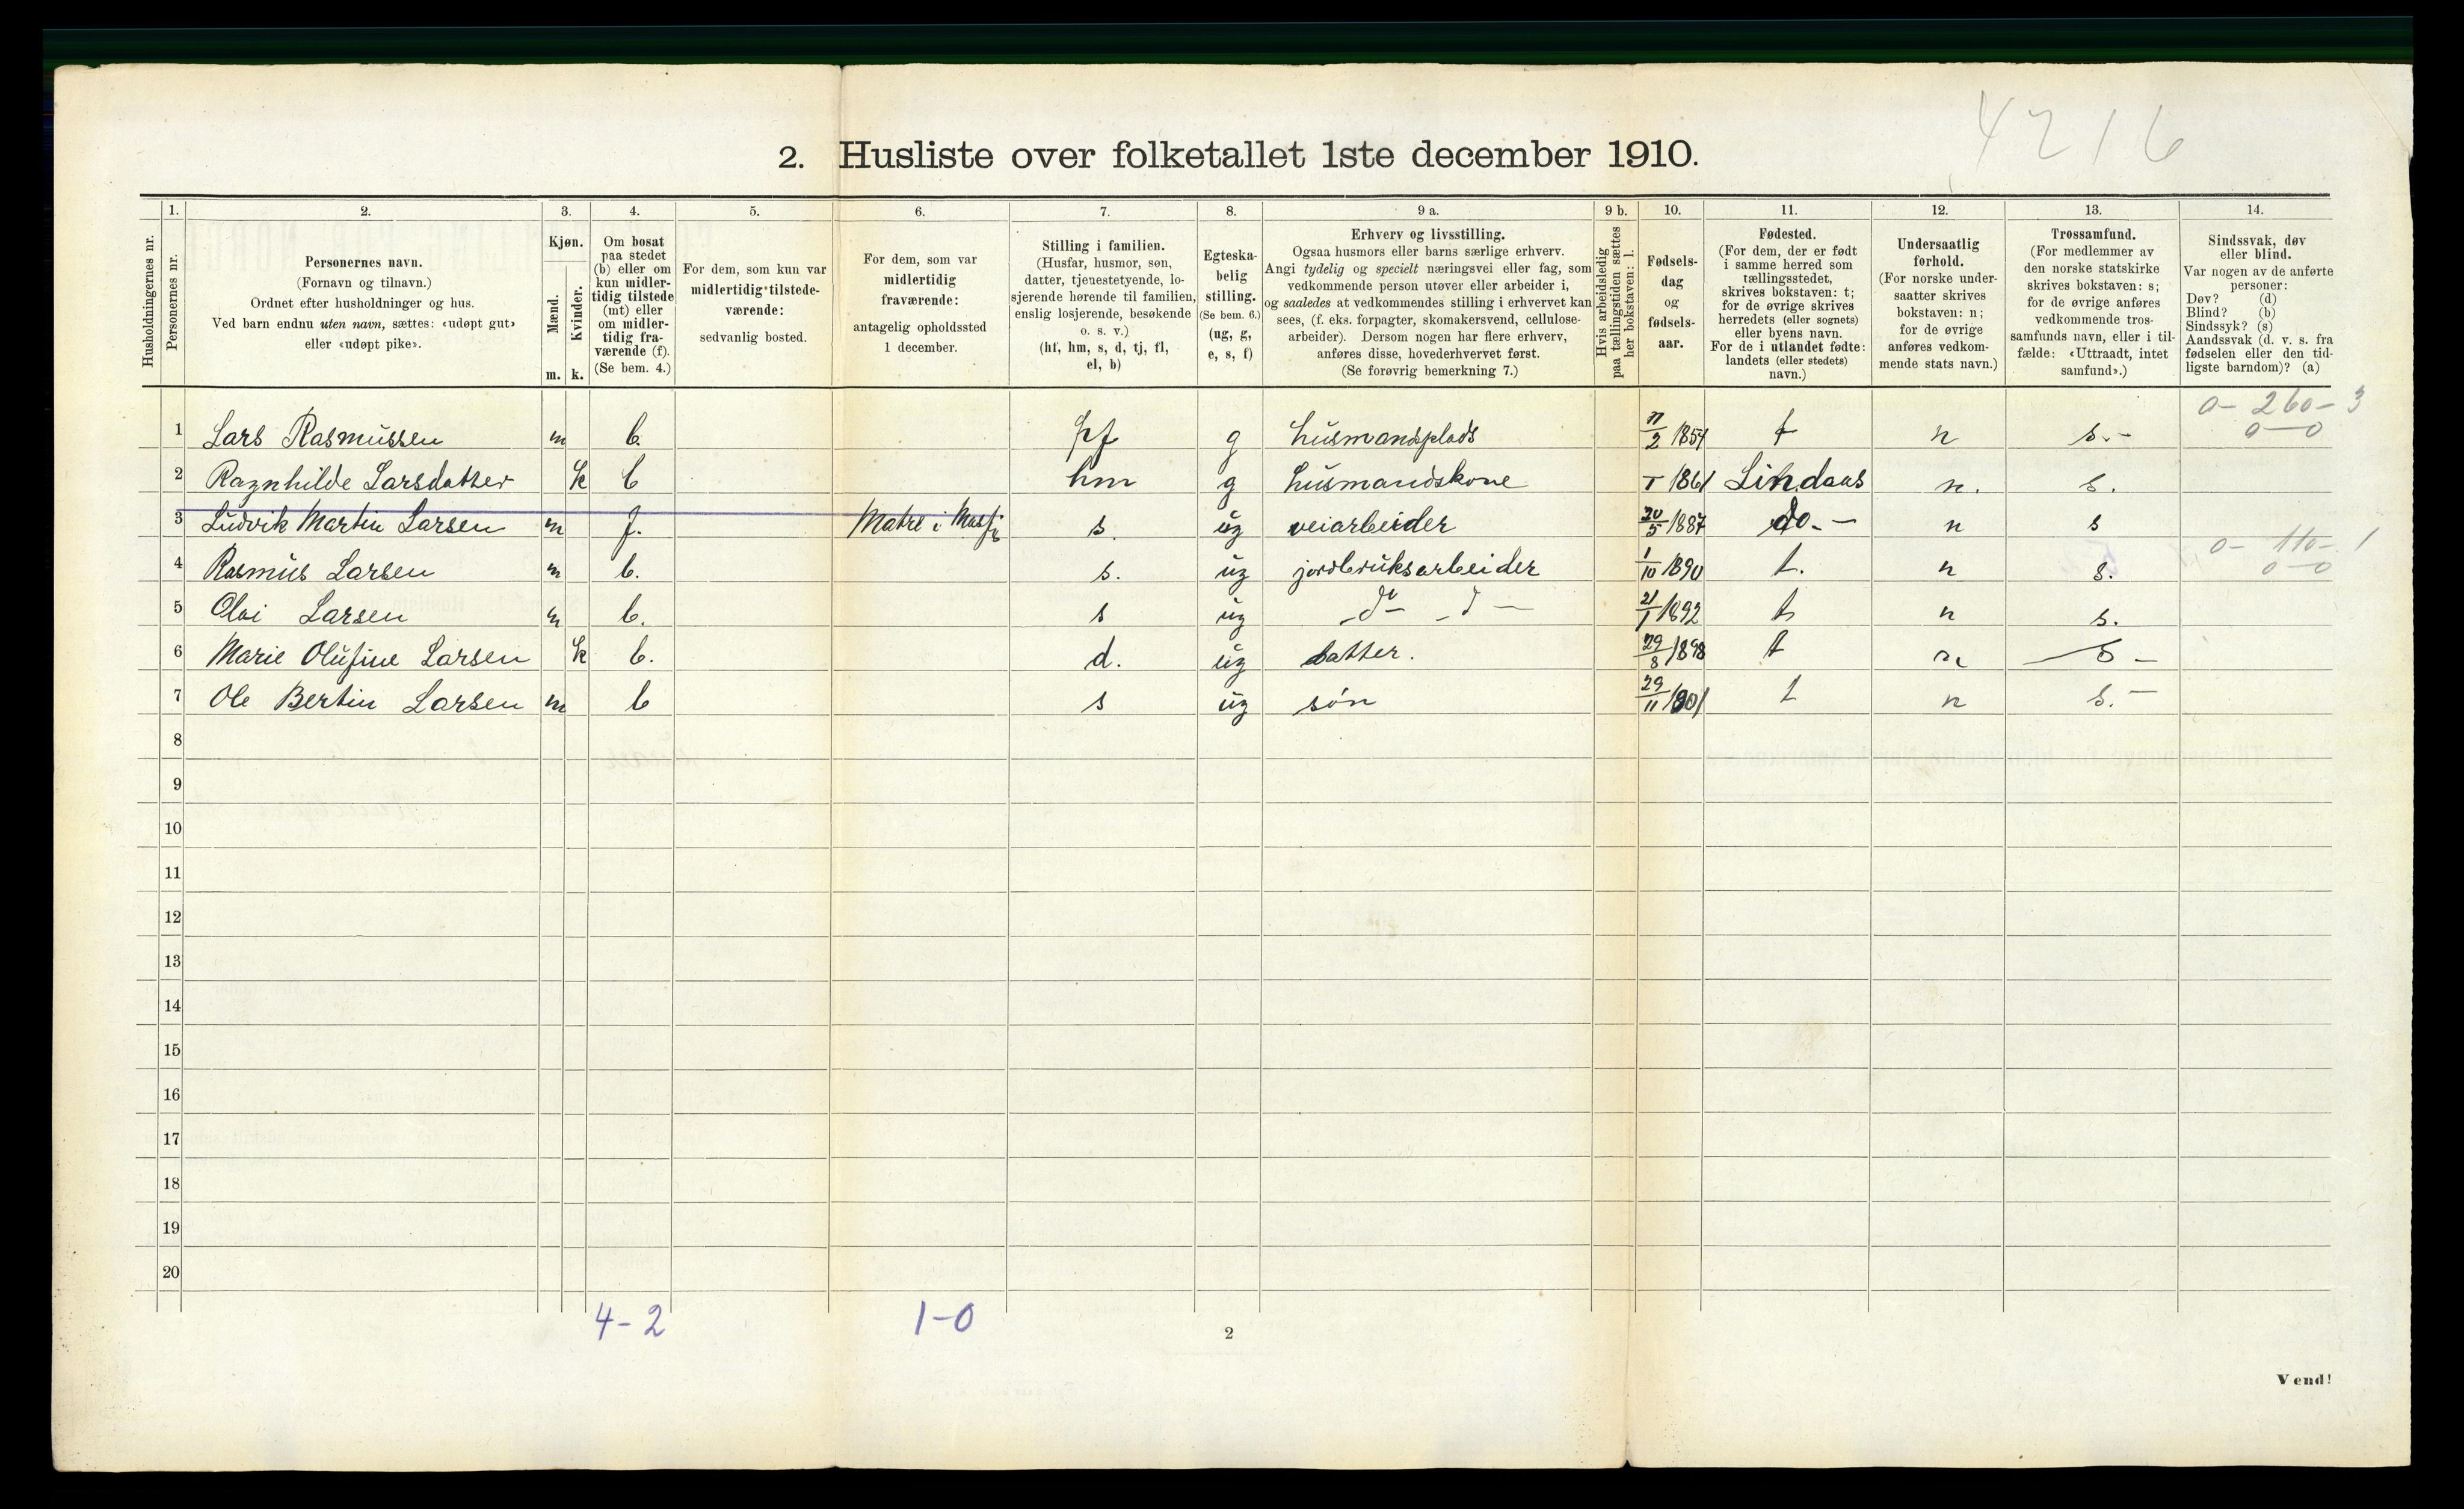 4216
2. Husliste over folketallet 1ste december 1910.
Husholdningernes nr.
1. Personernes nr.
2. Personernes navn.
(Fornavn og tilnavn.)
Ordnet efter husholdninger og hus.
Ved barn endnu uten navn, sættes: «udøpt gut»
eller «udøpt pike».
3. Kjøn.
Mænd. Kvinder.
m. k.
4. Om bosat
paa stedet
(b) eller om
kun midler-
tidig tilstede
(mt) eller
om midler-
tidig fra-
værende (f).
(Se bem. 4.)
5. For dem, som kun var
midlertidig tilstede-
værende:
sedvanlig bosted.
6. For dem, som var
midlertidig
fraværende:
antagelig opholdssted
1 december.
7. Stilling i familien.
(Husfar, husmor, søn,
datter, tjenestetyende, lo-
sjerende hørende til familien,
enslig losjerende, besøkende
o. s. v.)
(hf, hm, s, d, tj, fl,
el, b)
8. Egteska-
belig
stilling.
(Se bem. 6.)
(ug, g,
e, s, f)
9 a. Erhverv og livsstilling.
Ogsaa husmors eller barns særlige erhverv.
Angi tydelig og specielt næringsvei eller fag, som
vedkommende person utøver eller arbeider i,
og saaledes at vedkommendes stilling i erhvervet kan
sees, (f. eks. forpagter, skomakersvend, cellulose-
arbeider). Dersom nogen har flere erhverv,
anføres disse, hovederhvervet først.
(Se forøvrig bemerkning 7.)
9 b. Hvis arbeidsledig
paa tællingstiden sættes
her bokstaven: l.
10. Fødsels-
dag
og
fødsels-
aar.
11. Fødested.
(For dem, der er født
i samme herred som
tællingsstedet,
skrives bokstaven: t;
for de øvrige skrives
herredets (eller sognets)
eller byens navn.
For de i utlandet fødte:
landets (eller stedets)
navn.)
12. Undersaatlig
forhold.
(For norske under-
saatter skrives
bokstaven: n;
for de øvrige
anføres vedkom-
mende stats navn.)
13. Trossamfund.
(For medlemmer av
den norske statskirke
skrives bokstaven: s;
for de øvrige anføres
vedkommende tros-
samfunds navn, eller i til-
fælde: «Uttraadt, intet
samfund».)
14. Sindssvak, døv
eller blind.
Var nogen av de anførte
personer:
Døv? (d)
Blind? (b)
Sindssyk? (s)
Aandssvak (d. v. s. fra
fødselen eller den tid-
ligste barndom)? (a)
0 - 260 - 3
0 - 0
1 Lars Rasmussen m b. hf g husmandsplads 11/2 1854 t n s. -
2 Ragnhilde Larsdatter k b hm g husmandskone 1861 Lindaas n. s.
3 Ludvik Martin Larsen m f. Matre i Masfj s. ug veiarbeider 20/5 1887 do. - n s
0 - 110 - 1
0 - 0
4 Rasmus Larsen m b. s. ug jordbruksarbeider 1/10 1890 t. n s.
5 Olai Larsen m b. s ug - do - d - 21/1 1892 t n s.
6 Marie Olufine Larsen k b. d. ug datter. 29/8 1898 t n s -
7 Ole Bertin Larsen m b s ug søn 29/11 1901 t n s. -
8
9
10
11
12
13
14
15
16
17
18
19
20
4-2 1-0
2
Vend!